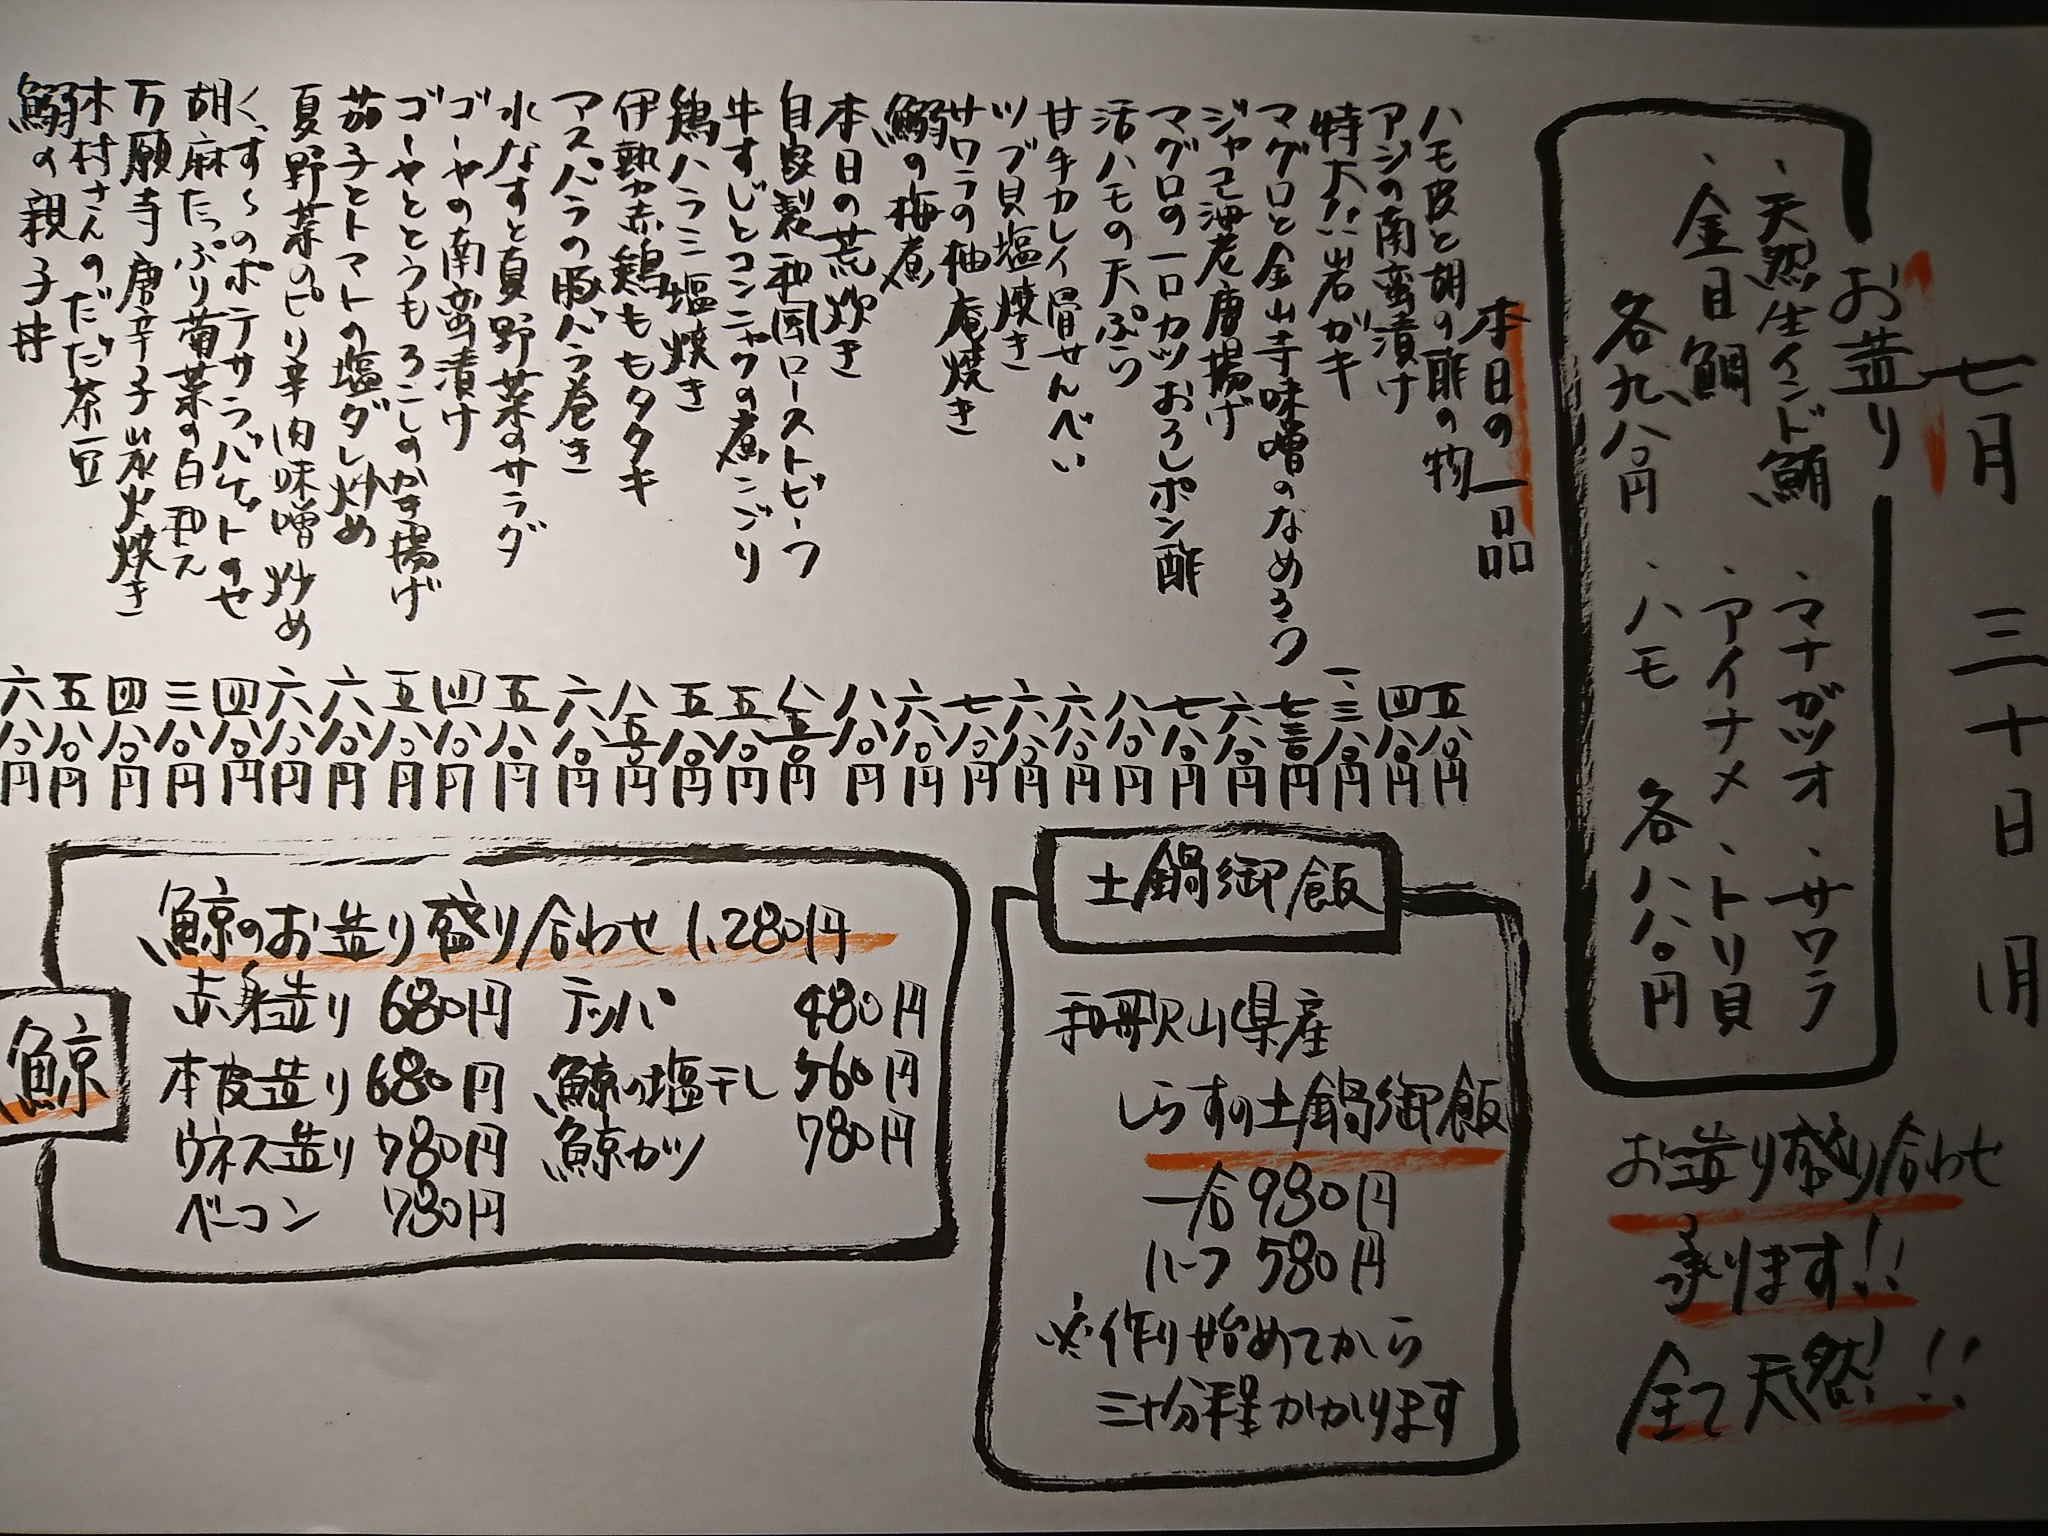 七月 三十日 月
お造り
・天然生インド鮪
・金目鯛
各九八〇円
・マナガツオ ・サワラ
・アイナメ ・トリ貝
・ハモ 各八八〇円
お造り盛り合わせ
承ります!!
全て天然!!!
本日の一品
ハモ皮と胡の酢の物 五八〇円
アジの南蛮漬け 四八〇円
特大!!岩ガキ 一、三八〇円
マグロと金山寺味噌のなめろう 七三〇円
ジャコ海老唐揚げ 六八〇円
マグロの一口カツおろしポン酢 七八〇円
活ハモの天ぷら 八八〇円
甘手カレイ骨せんべい 六八〇円
ツブ貝塩焼き 六八〇円
サワラの柚庵焼き 七八〇円
鰯の梅煮 六八〇円
本日の荒炊き 八八〇円
自家製和風ローストビーフ 八五〇円
牛すじとコンニャクの煮こごり 五八〇円
鶏ハラミ塩焼き 五八〇円
伊勢赤鶏ももタタキ 八五〇円
アスパラの豚バラ巻き 六八〇円
水なすと夏野菜のサラダ 五八〇円
ゴーヤの南蛮漬け 四八〇円
ゴーヤととうもろこしのかき揚げ 五八〇円
茄子とトマトの塩ダレ炒め 六八〇円
夏野菜のピリ辛肉味噌炒め 六八〇円
くっす〜のポテサラバゲットのせ 四八〇円
胡麻たっぷり菊菜の白和え 三八〇円
万願寺唐辛子炭火焼き 四八〇円
木村さんのだだ茶豆 五八〇円
鰯の親子丼 六八〇円
土鍋御飯
和歌山県産
しらすの土鍋御飯
一合 980円
ハーフ 580円
※作り始めてから
三十分程かかります
鯨
鯨のお造り盛り合わせ 1,280円
赤身造り 680円 テッパ 480円
本皮造り 680円 鯨の塩干し 560円
ウネス造り 780円 鯨カツ 780円
ベーコン 780円